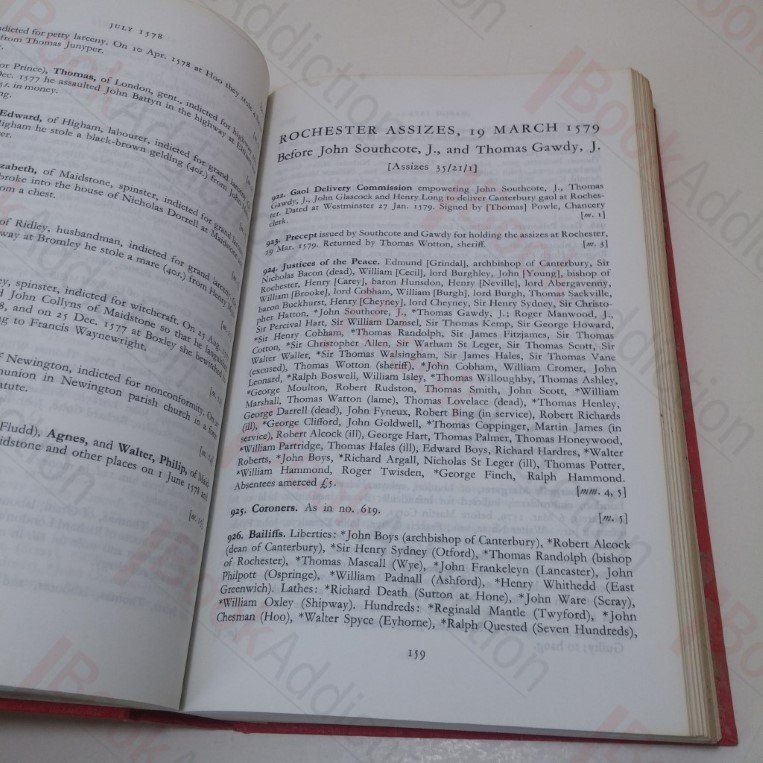 JULY 1578
indicted for petty larceny. On 10 Apr. 1578 at Hoo they stole
from Thomas Junyper.
or Prince), Thomas, of London, gent., indicted for highway
Dec. 1577 he assaulted John Battyn in the highway at
5s. in money.
Edward, of Higham, labourer, indicted for grand larceny.
Higham he stole a black-brown gelding (40s.) from John
Elizabeth, of Maidstone, spinster, indicted for grand larceny
broke into the house of Nicholas Dorrell at Maidstone
from a chest.
of Ridley, husbandman, indicted for grand larceny.
at Bromley he stole a mare (40s.) from Henry
spinster, indicted for witchcraft. On 25 Aug.
John Collyns of Maidstone so that he languished
and on 25 Dec. 1577 at Boxley she bewitched
to Francis Waynewright.
of Newington, indicted for nonconformity. On
communion in Newington parish church
statute.
Fludd), Agnes, and Walter, Philip, of
Maidstone and other places on 1 June 1578 and
ROCHESTER ASSIZES, 19 MARCH 1579
Before John Southcote, J., and Thomas Gawdy, J.
[Assizes 35/21/1]
922. Gaol Delivery Commission empowering John Southcote, J., Thomas
Gawdy, J., John Glascock and Henry Long to deliver Canterbury gaol at Roches-
ter. Dated at Westminster 27 Jan. 1579. Signed by [Thomas] Powle, Chancery
clerk. [m. 1]
923. Precept issued by Southcote and Gawdy for holding the assizes at Rochester,
19 Mar. 1579. Returned by Thomas Wotton, sheriff. [m. 3]
924. Justices of the Peace. Edmund [Grindal], archbishop of Canterbury, Sir
Nicholas Bacon (dead), William [Cecil], lord Burghley, John [Young], bishop of
Rochester, Henry [Carey], baron Hunsdon, Henry [Neville], lord Abergavenny,
William [Brooke], lord Cobham, William [Burgh], lord Burgh, Thomas Sackville,
baron Buckhurst, Henry [Cheyney], lord Cheyney, Sir Henry Sydney, Sir Christo-
pher Hatton, *John Southcote, J., *Thomas Gawdy, J.; Roger Manwood, J.,
Sir Percival Hart, Sir William Damsel, Sir Thomas Kemp, Sir George Howard,
*Sir Henry Cobham, *Thomas Randolph, Sir James Fitzjames, Sir Thomas
Cotton, *Sir Christopher Allen, Sir Warham St Leger, Sir Thomas Scott, Sir
Walter Waller, *Sir Thomas Walsingham, Sir James Hales, Sir Thomas Vane
(excused), Thomas Wotton (sheriff), *John Cobham, William Cromer, John
Leonard, *Ralph Boswell, William Isley, *Thomas Willoughby, Thomas Ashley,
*George Moulton, Robert Rudston, Thomas Smith, John Scott, *William
Marshall, Thomas Watton (lame), Thomas Lovelace (dead), *Thomas Henley,
George Darrell (dead), John Fyneux, Robert Bing (in service), Robert Richards
(ill), *George Clifford, John Goldwell, *Thomas Coppinger, Martin James (in
service), Robert Alcock (ill), George Hart, Thomas Palmer, Thomas Honeywood,
*William Partridge, Thomas Hales (ill), Edward Boys, Richard Hardres, *Walter
Roberts, *John Boys, *Richard Argall, Nicholas St Leger (ill), Thomas Potter,
*William Hammond, Roger Twisden, *George Finch, Ralph Hammond.
Absentees amerced £5. [mm. 4, 5]
925. Coroners. As in no. 619. [m. 5]
926. Bailiffs. Liberties: *John Boys (archbishop of Canterbury), *Robert Alcock
(dean of Canterbury), *Sir Henry Sydney (Otford), *Thomas Randolph (bishop
of Rochester), *Thomas Mascall (Wye), *John Frankeleyn (Lancaster), John
Philpott (Ospringe), *William Padnall (Ashford), *Henry Whithedd (East
Greenwich). Lathes: *Richard Death (Sutton at Hone), *John Ware (Scray),
*William Oxley (Shipway). Hundreds: *Reginald Mantle (Twyford), *John
Chesman (Hoo), *Walter Spyce (Eyhorne), *Ralph Quested (Seven Hundreds),
159
BookAddiction